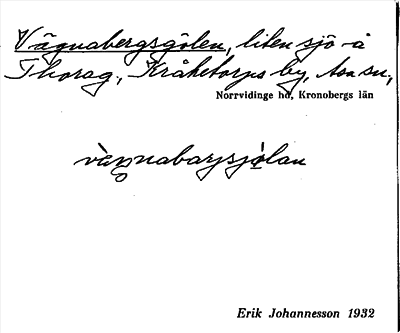 Vägnabergsgölen, liten sjö å
Thorag., Kråketorps by, Asa sn,
Norrvidinge hd, Kronobergs län
Erik Johannesson 1932